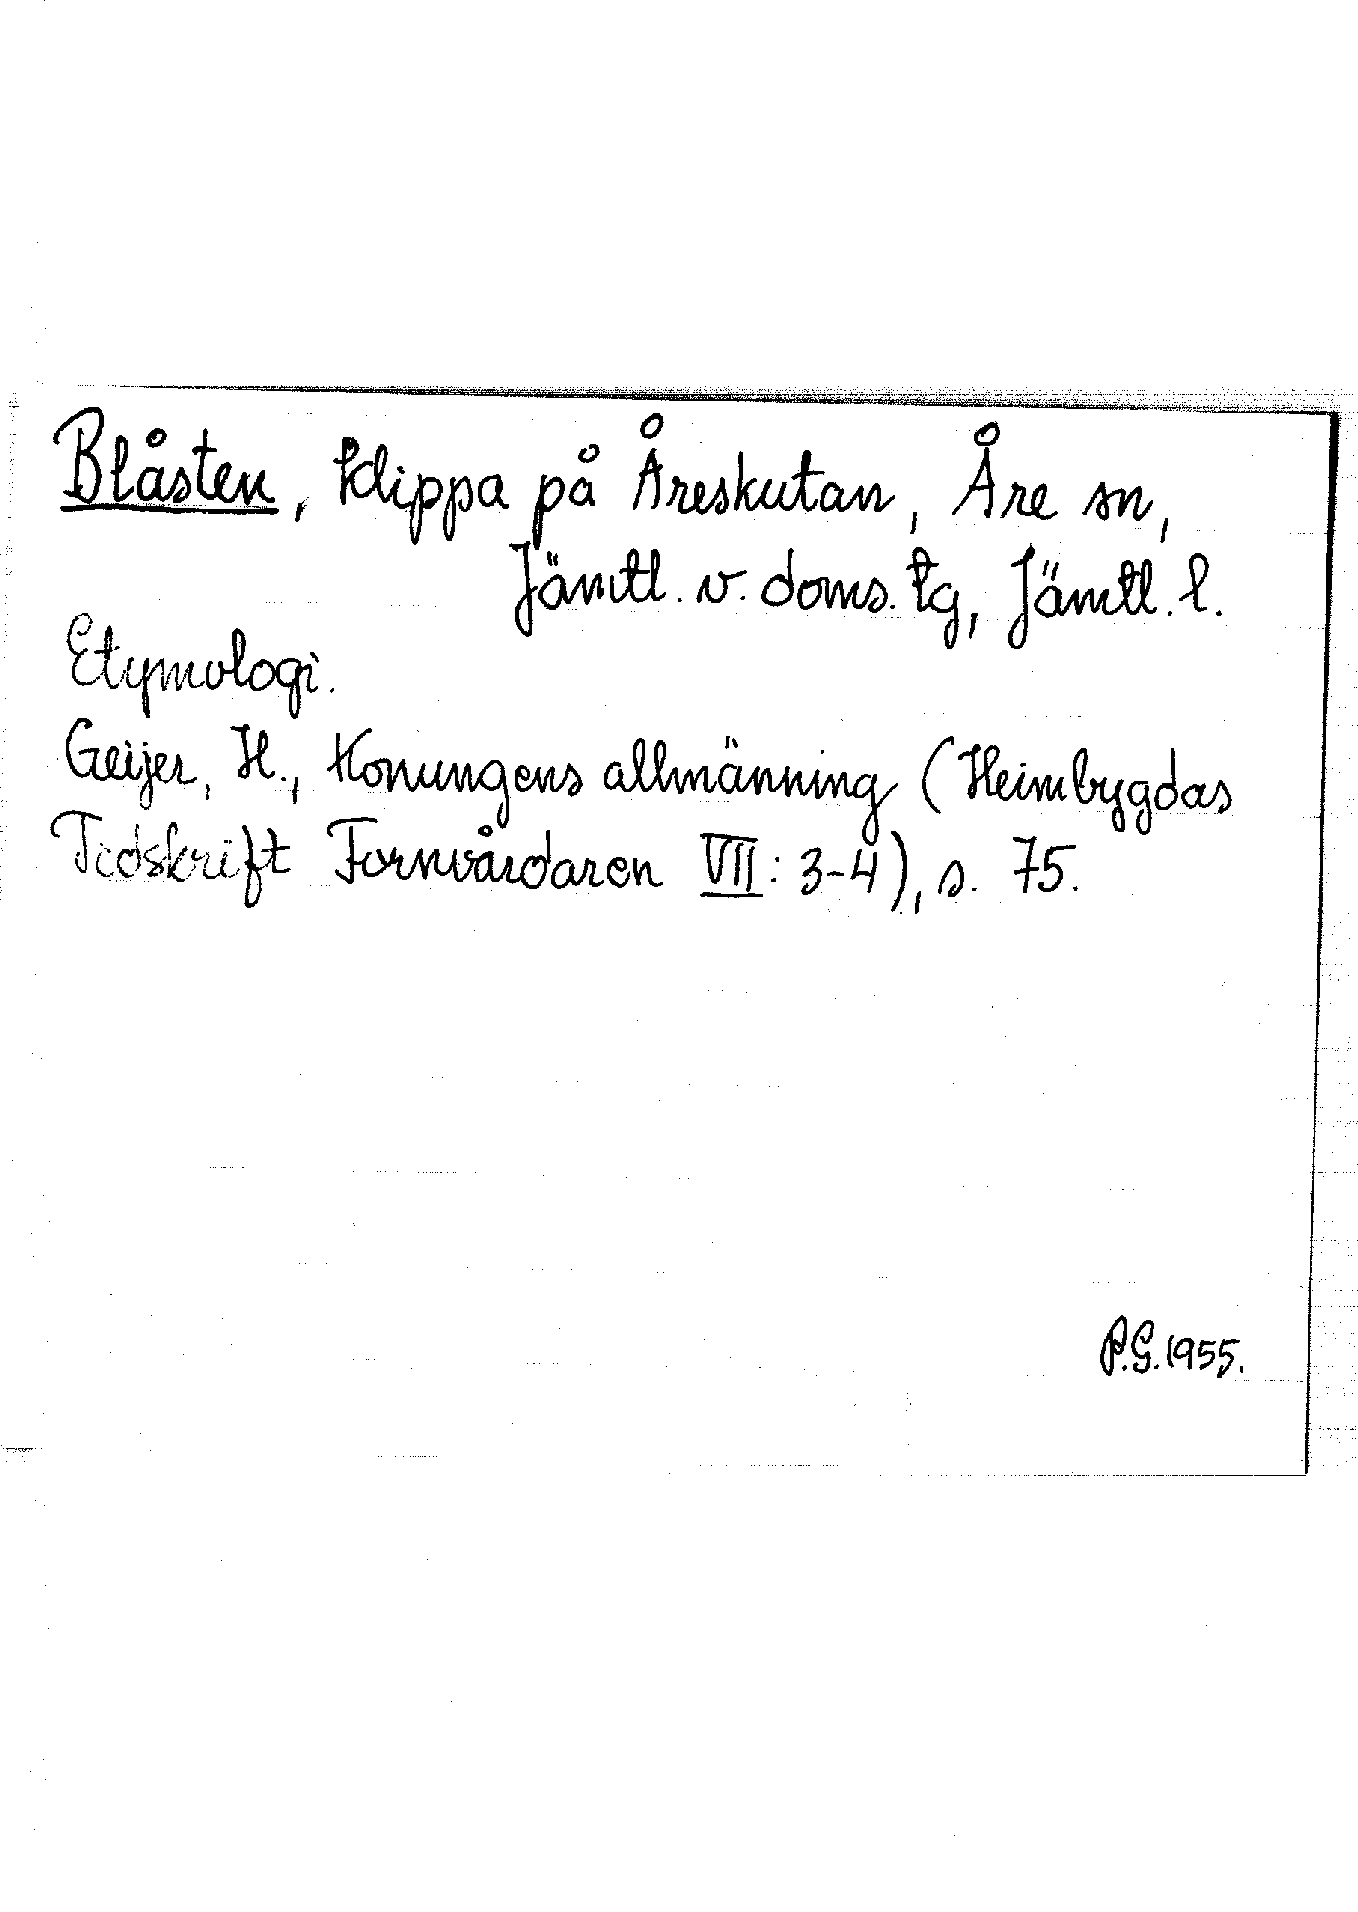 Blåsten, klippa på Åreskutan, Åre sn,
Jämtl. v. doms. tg, Jämtl. l.
Etymologi.
Geijer, H., Konungens allmänning (Heimbygdas
Tidskrift Fornvårdaren VII: 3-4), s. 75.
P.G. 1955.